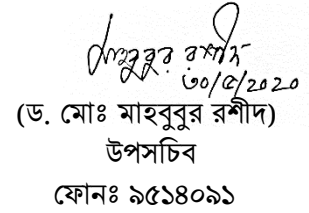 মাহবুবুর রশীদ
৩০/৫/২০২০
(ড. মোঃ মাহবুবুর রশীদ)
উপসচিব
ফোনঃ ৯৫১৪০৯১